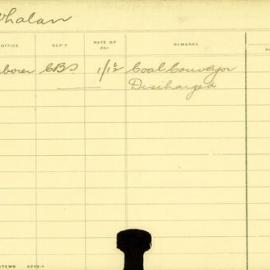 Whalan
OFFICE DEP'T RATE OF PAY REMARKS
borer CBS 1/1½ Coal Conveyor
Discharged